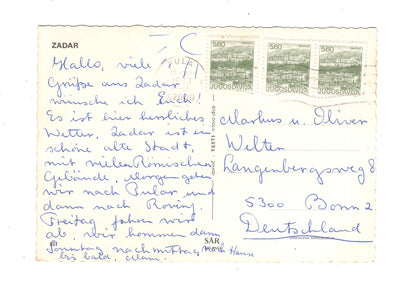 ZADAR
Hallo, viele
Grüße aus Zadar
wünsche ich Euch.
Es ist hier herrliches
Wetter. Zadar ist ein
schöne alte Stadt,
mit vielen Römischen
Gebäude. Morgen gehen
wir nach Pular und
dann nach Rovinj.
Freitag fahren wir
ab. Wir kommen dann
Sonntag nachmittags nach Haus
bis bald,
PULA
5.60
JUGOSLAVIJA
5.60
JUGOSLAVIJA
5.60
JUGOSLAVIJA
Markus u. Oliver
Welten
Langenbergsweg 8
5300 Bonn 2
Deutschland
VESTI
SAR